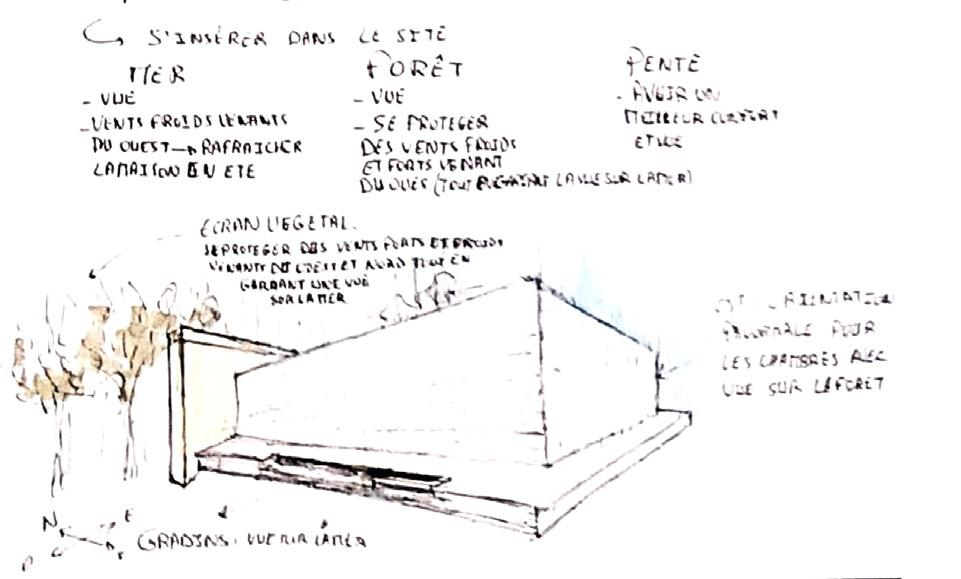 S'INSÉRER DANS LE SITE
MER
- VUE
- VENTS FROIDS VENANTS
DU OUEST → RAFRAICHIR
LA MAISON EN ETE
FORÊT
- VUE
- SE PROTEGER
DES VENTS FROIDS
ET FORTS VENANT
DU OUES (TOUT LA VUE SUR LA MER)
PENTE
- AVOIR UN
MEILLEUR CONFORT
ET VUE
ECRAN VEGETAL.
SE PROTEGER DES VENTS FORTS ET FROIDS
VENANTS DU OUEST ET NORD TOUT EN
GARDANT UNE VUE
SUR LA MER
EST ORIENTATION
FAVORABLE POUR
LES CHAMBRES AVEC
VUE SUR LA FORET
N
E
GRADINS : VUE SUR LA MER